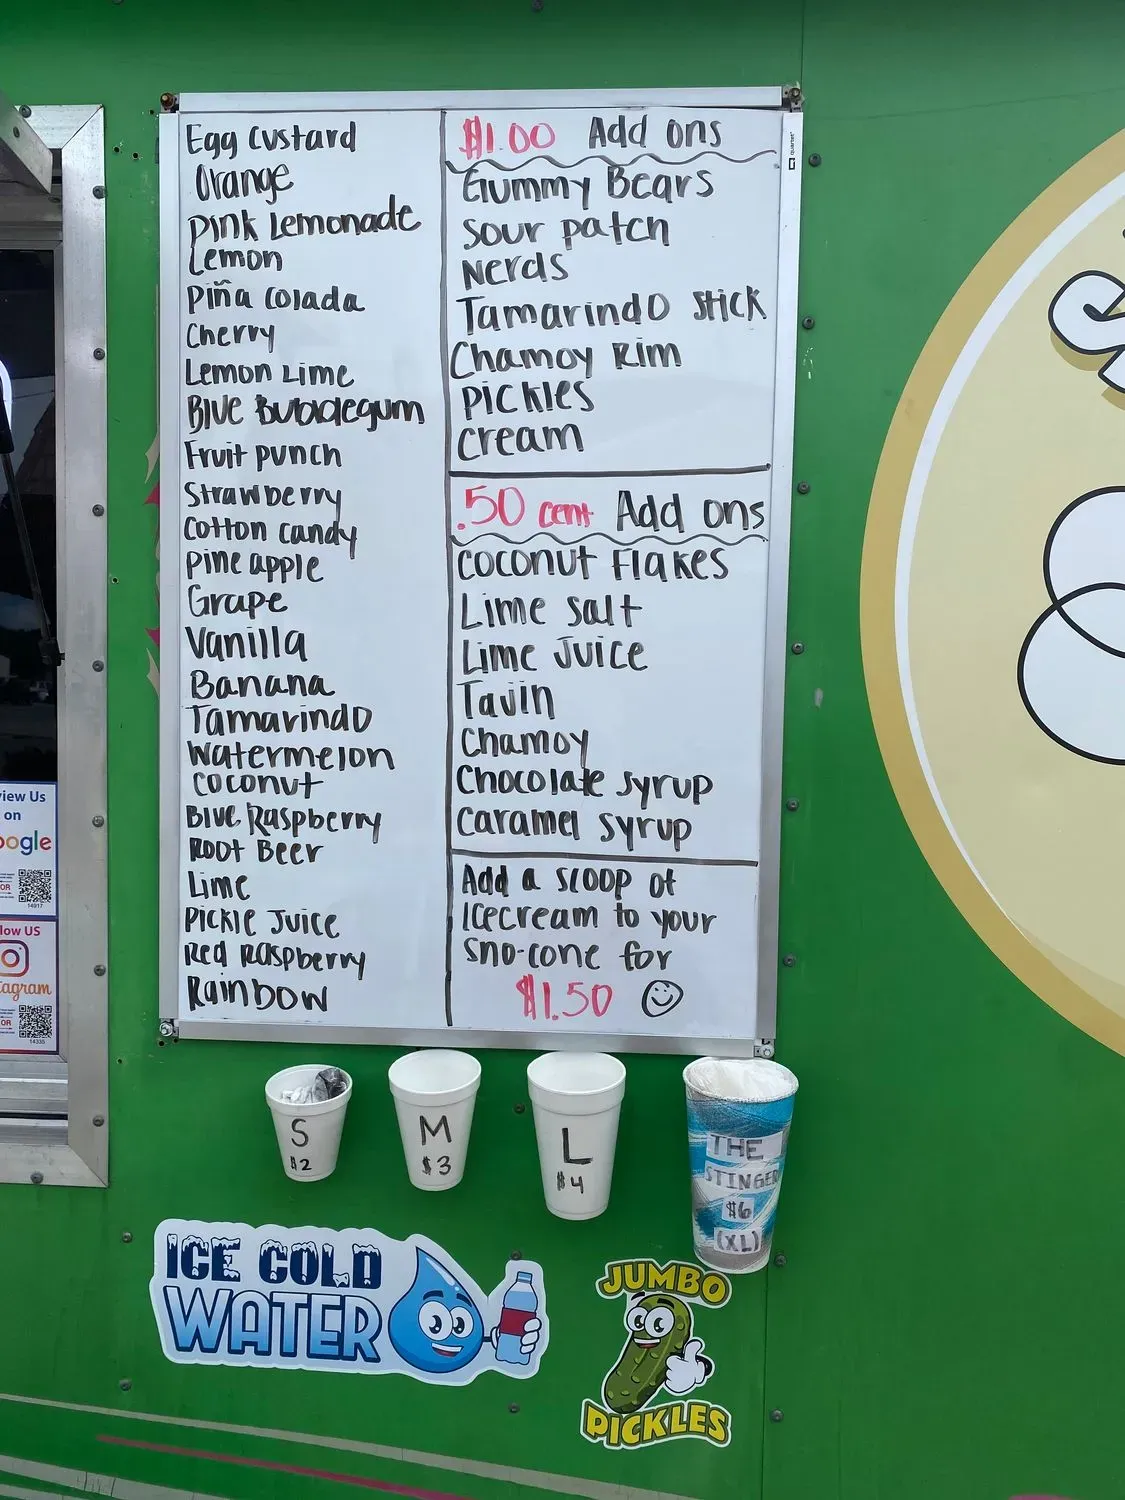 Egg Custard
Orange
Pink Lemonade
Lemon
Piña Colada
Cherry
Lemon Lime
Blue Bubblegum
Fruit punch
Strawberry
Cotton candy
Pineapple
Grape
Vanilla
Banana
Tamarindo
Watermelon
Coconut
Blue Raspberry
Root Beer
Lime
Pickle Juice
Red Raspberry
Rainbow
$1.00 Add ons
Gummy Bears
Sour patch
Nerds
Tamarindo Stick
Chamoy Rim
Pickles
Cream
.50 cent Add ons
Coconut Flakes
Lime Salt
Lime Juice
Tajin
Chamoy
Chocolate Syrup
Caramel Syrup
Add a scoop of
Icecream to your
Sno-cone for
$1.50
quartet
view Us
on
oogle
OR
14917
llow US
tagram
OR
14335
S
$2
M
$3
L
$4
THE
STINGER
$6
(XL)
ICE COLD
WATER
JUMBO
PICKLES